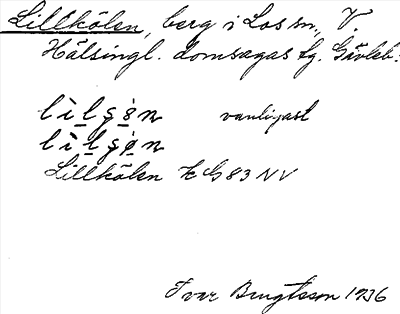 Lillkölen, berg i Los sn., V.
Hälsingl. domsagas tg. Gävleb.
vanligast
Lillkölen k G 83 NV
Ivar Bengtsson 1936